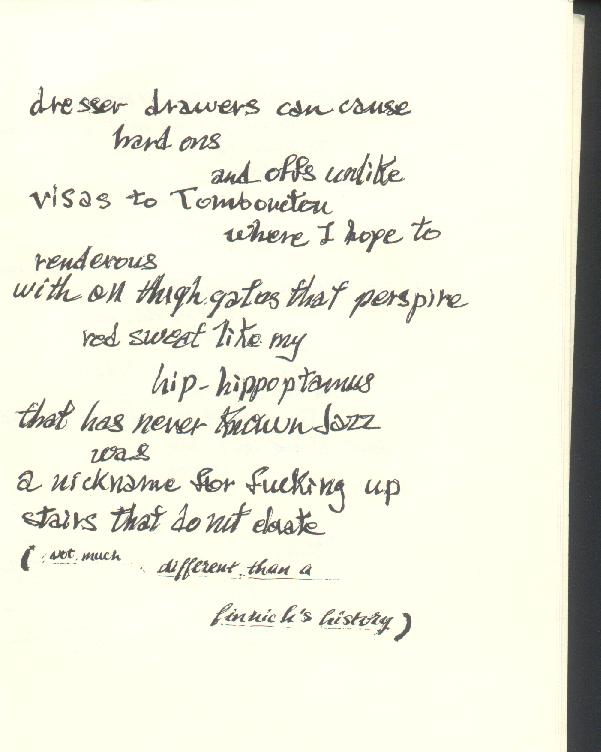 dresser drawers can cause
hard ons
and offs unlike
visas to Tombouctou
where I hope to
renderous
with on thigh gates that perspire
red sweat like my
hip-hippoptamus
that has never known Jazz
was
a nickname for fucking up
stairs that do nt
( not much different than a
finnick's history )